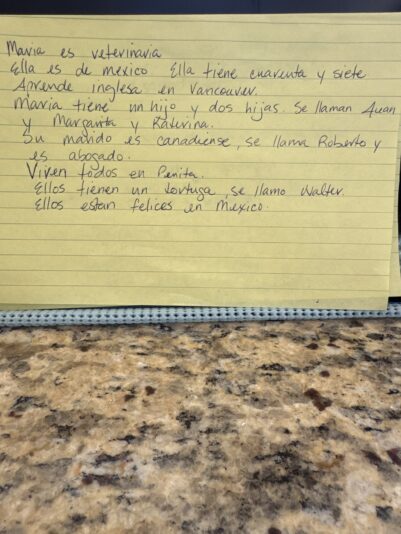 Maria es veterinaria
Ella es de mexico Ella tiene cuarenta y siete
Aprende inglesa en Vancouver.
Maria tiene un hijo y dos hijas. Se llaman Juan
y Margarita y Katerina.
Su marido es canadiense, se llama Roberto y
es abogado.
Viven todos en Penita.
Ellos tienen un tortuga, se llamo Walter.
Ellos estan felices en Mexico.